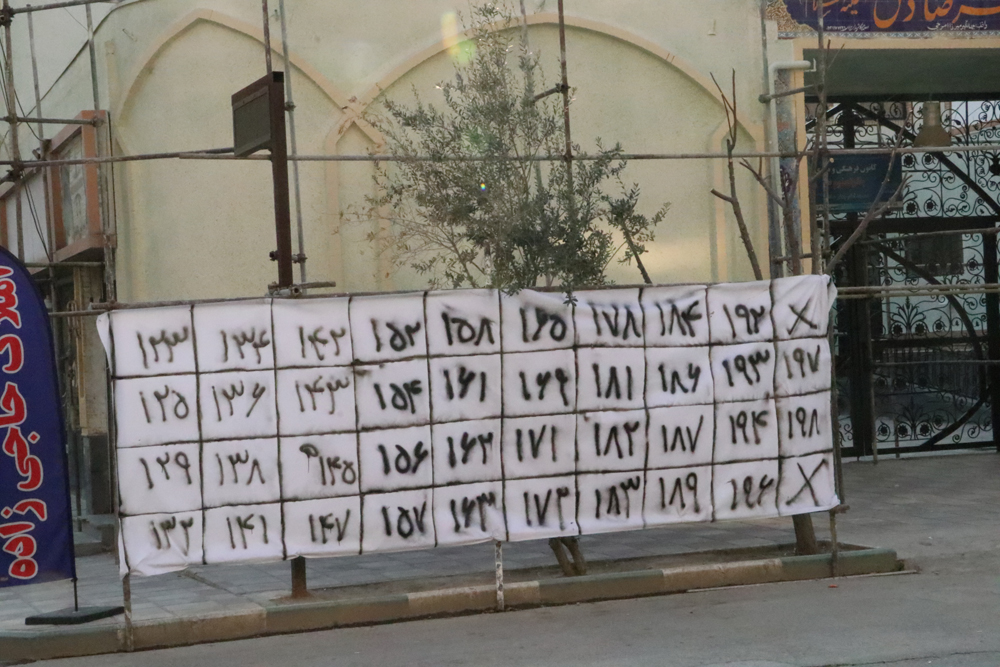 ۱۲۳ ۱۳۴ ۱۴۲ ۱۵۲ ۱۵۸ ۱۶۵ ۱۷۸ ۱۸۴ ۱۹۲ X
۱۲۵ ۱۳۶ ۱۴۳ ۱۵۴ ۱۶۱ ۱۶۹ ۱۸۱ ۱۸۶ ۱۹۳ ۱۹۷
۱۲۹ ۱۳۸ ۱۴۵م ۱۵۶ ۱۶۲ ۱۷۱ ۱۸۲ ۱۸۷ ۱۹۴ ۱۹۸
۱۳۲ ۱۴۱ ۱۴۷ ۱۵۷ ۱۶۳ ۱۷۲ ۱۸۳ ۱۸۹ ۱۹۶ X
حاجی زاده
کانون فرهنگی و